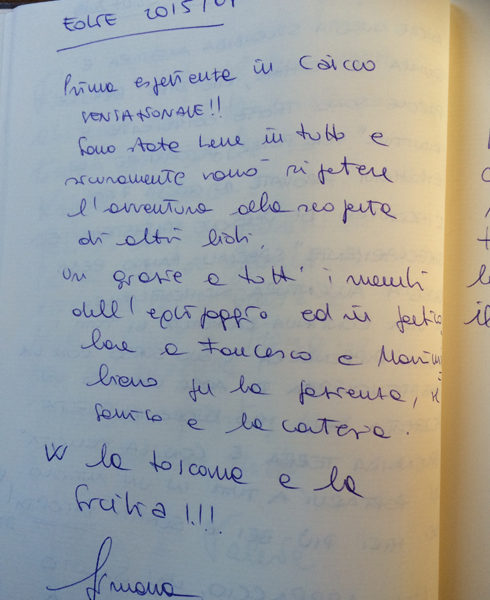 EOLIE 2015/07
Prima esperienza in Caicco
SENSAZIONALE!!
Sono stata bene in tutto e
sicuramente vorrò ripetere
l'avventura alla scoperta
di altri lidi.
Un grazie a tutti i membri
dell'equipaggio ed in partico
lare a Francesco e Massimi
liano per la pazienza, il
sorriso e la cortesia.
W la toscana e la
Sicilia!!!
Simona